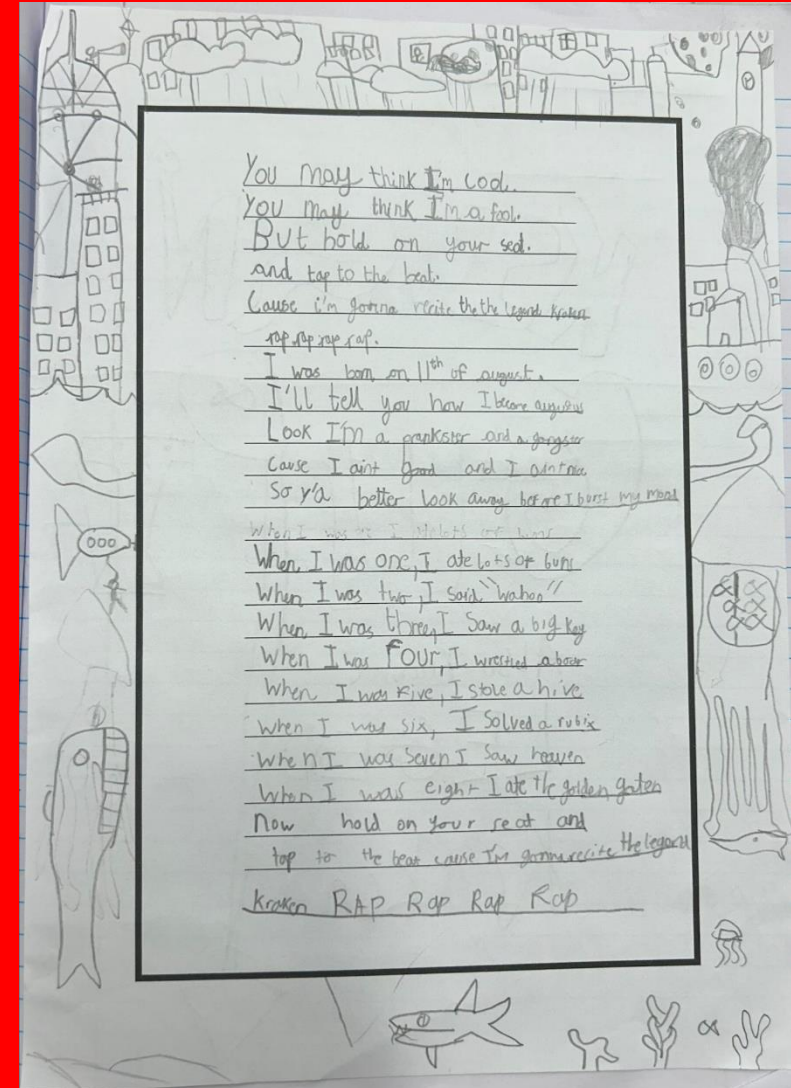 You may think I'm cool.
You may think I'm a fool.
But hold on your seat.
and tap to the beat.
Cause i'm gonna recite the the legend kraken
rap rap rap rap.
I was born on 11th of august.
I'll tell you how I became augustus
Look I'm a prankster and a gangster
Cause I aint good and I aint nice
So y'a better look away before I burst my mood
When I was I ate lots of buns
When I was one, I ate lots of buns
When I was two, I said "wahoo"
When I was three, I saw a big key
When I was four, I wrestled a boar
When I was five, I stole a hive
When I was six, I solved a rubix
When I was seven I saw heaven
When I was eight I ate the golden gates
Now hold on your seat and
tap to the beat cause I'm gonna recite the legend
kraken RAP Rap Rap Rap